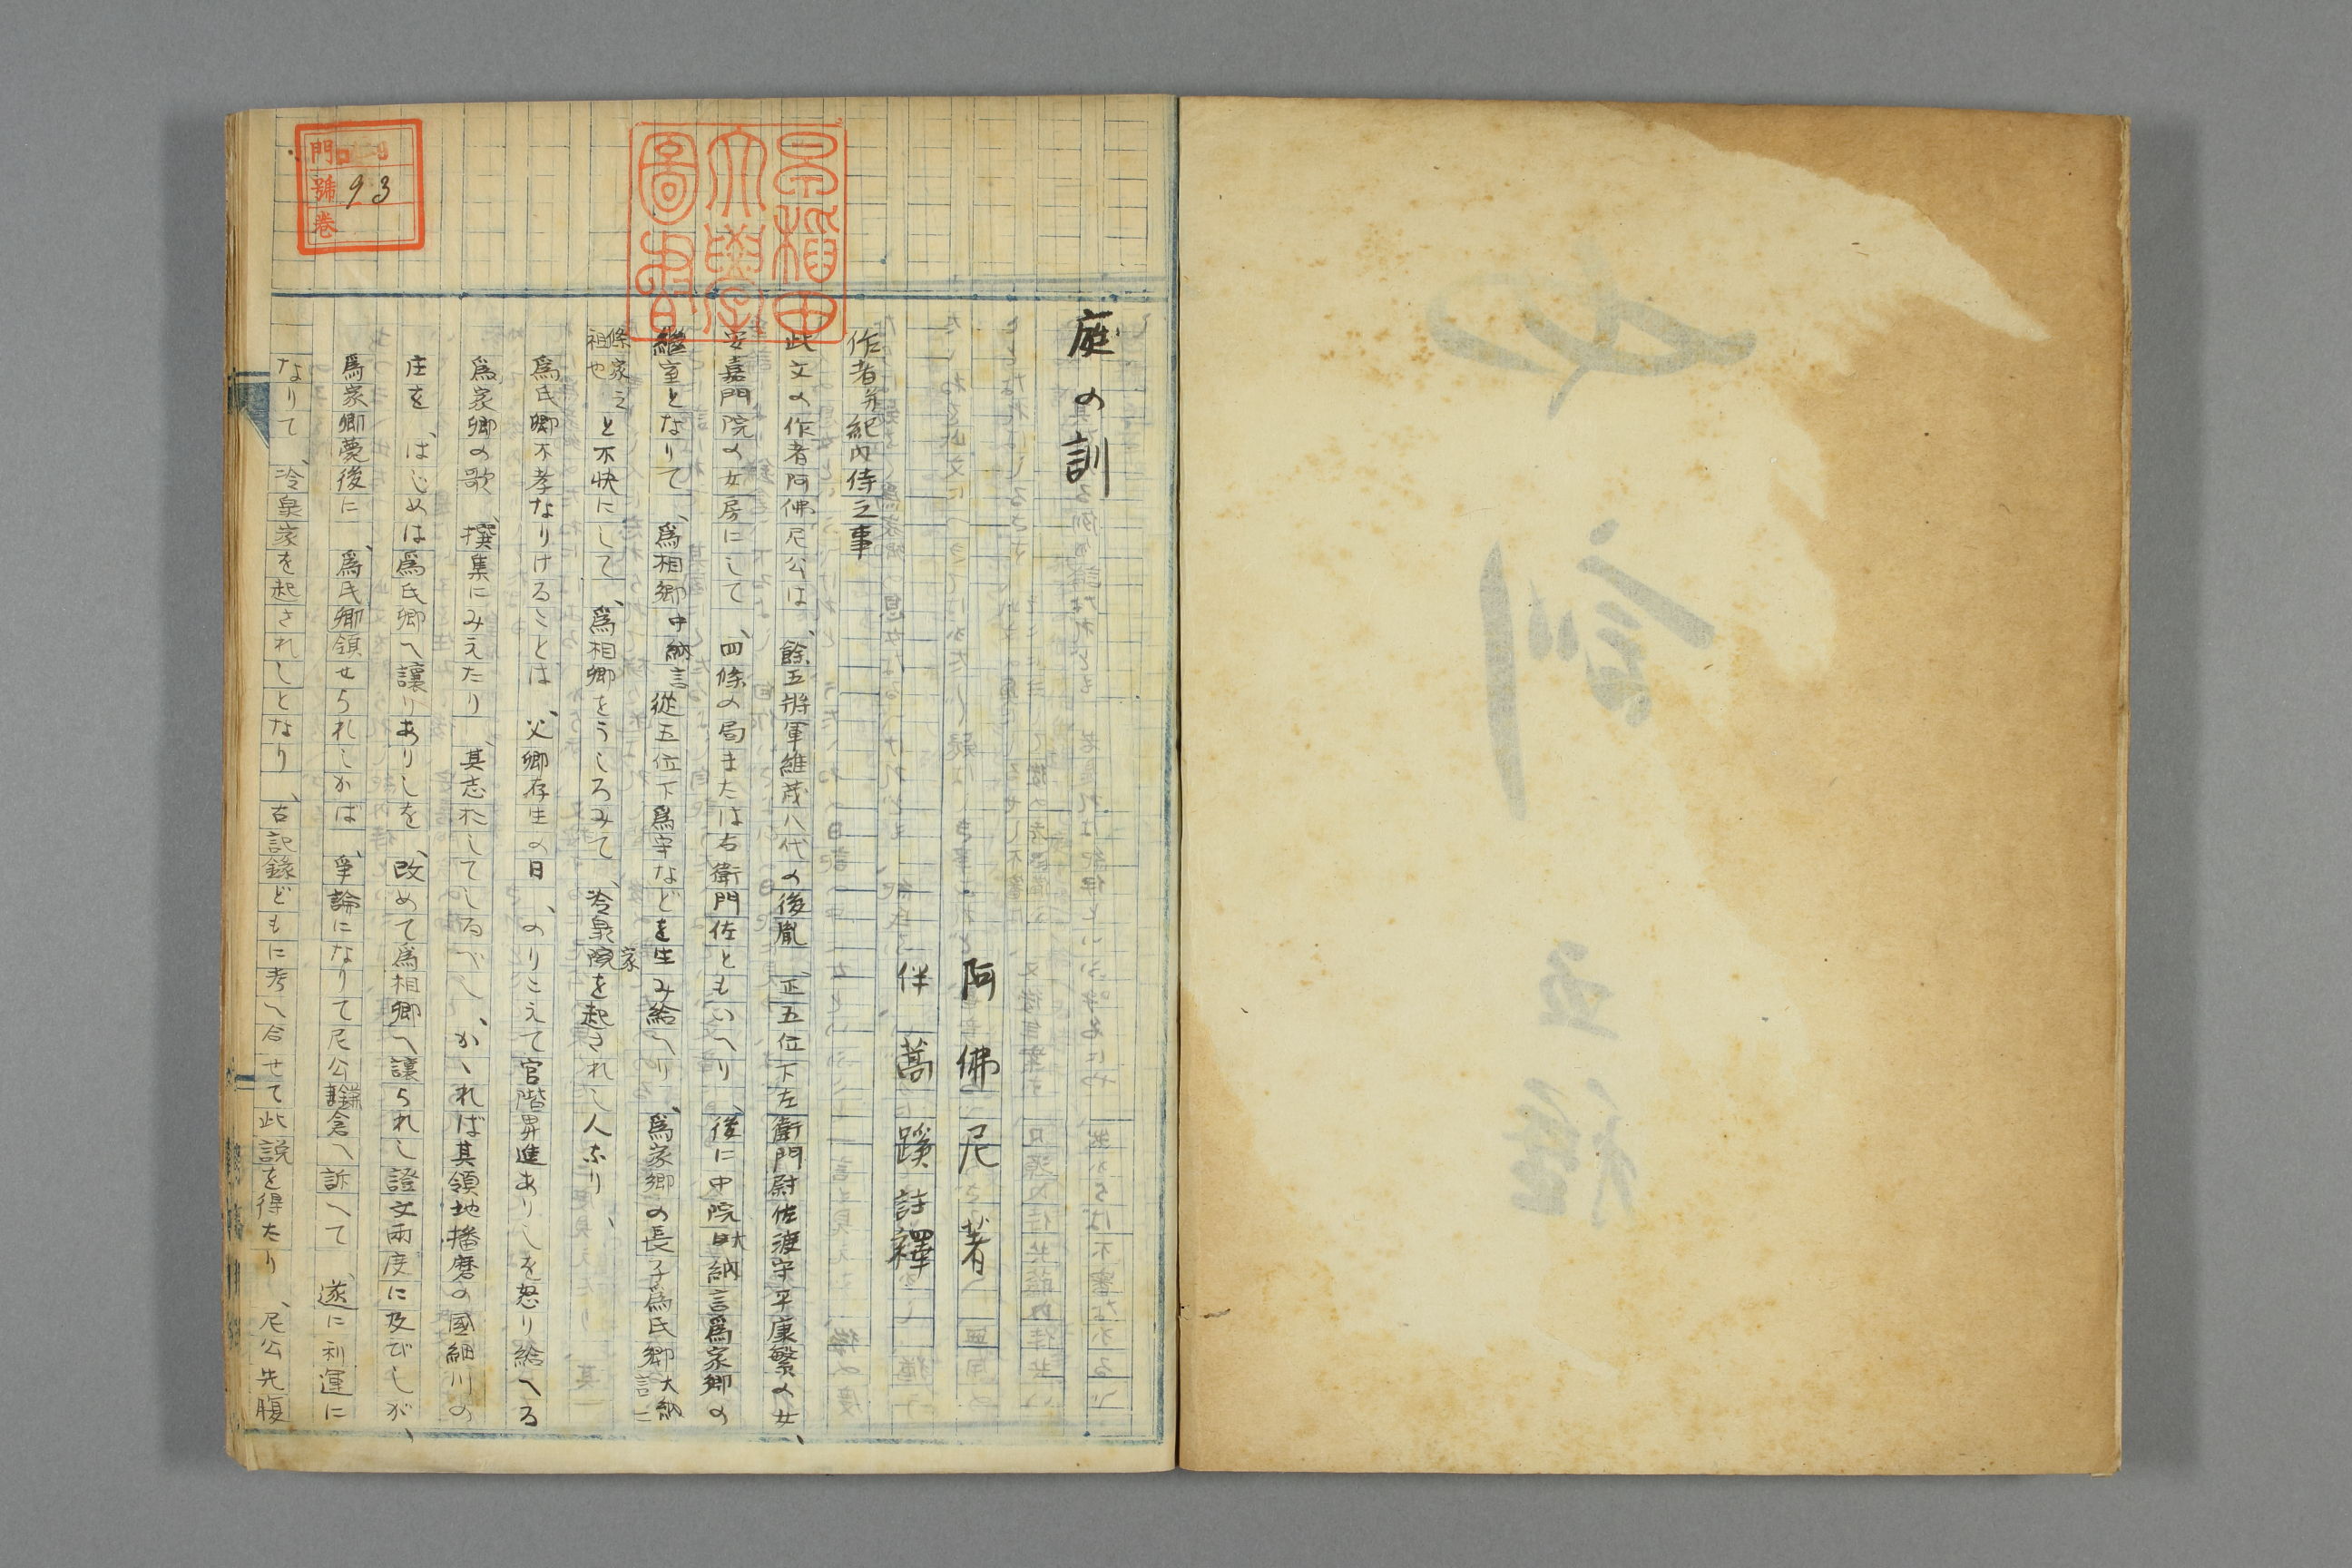 庭の訓
阿佛尼著
伴蒿蹊註釋
作者并紀内侍之事
此文の作者阿佛尼公は、餘五將軍維茂八代の後胤、正五位下左衛門尉佐渡守平康繁の女、
安嘉門院の女房にして、四條の局または右衛門佐ともいへり、後に中院大納言爲家卿の
繼室となりて、爲相卿中納言從五位下爲守などを生み給へり、爲家卿の長子爲氏卿大納言二
條家之祖也と不快にして、爲相卿をうしろみて、冷泉院家を起されし人なり、
爲氏卿不孝なりけることは、父卿存生の日、のりこえて官階昇進ありしを怒り給へる
爲家卿の歌、撰集にみえたり、其志おしてしるべし、かゝれば其領地播磨の國細川の
庄を、はじめは爲氏卿へ讓りありしを、改めて爲相卿へ讓られし證文兩度に及びしが、
爲家卿薨後に、爲氏卿領せられしかば、爭論になりて尼公鎌倉へ訴へて、遂に利運に
なりて、冷泉家を起されしとなり、古記錄どもに考へ合せて此説を得たり、尼公先腹
門
號 93
卷
早稻田大學圖書
女訓
五種